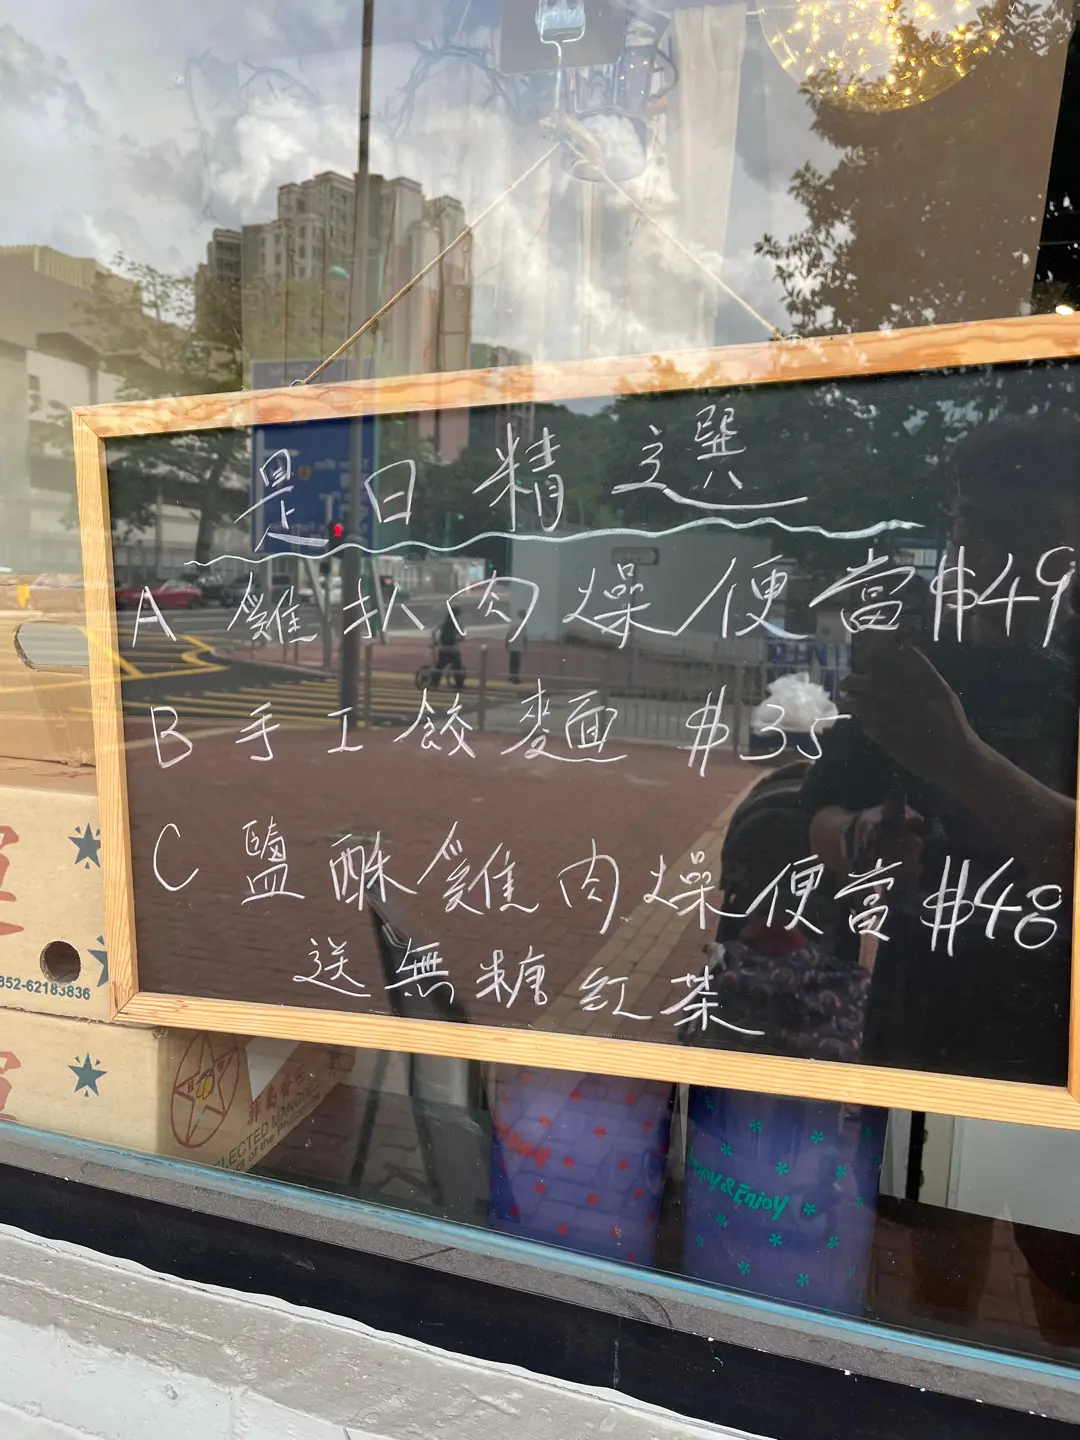 是日精選
A 雞扒肉燥便當$49
B 手工餃麵 $35
C 鹽酥雞肉燥便當$48
送無糖紅茶
852-62183836
Happy & Enjoy